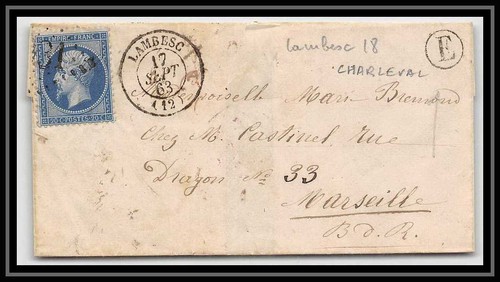 EMPIRE FRANC.
20 C. POSTES 20 C.
LAMBESC
17
SEPT
63
(12)
lambesc 18
CHARLEVAL
E
Marie Bremond
Chez M. Castinel, Rue
Dragon No 33
Marseille
B.d.R.